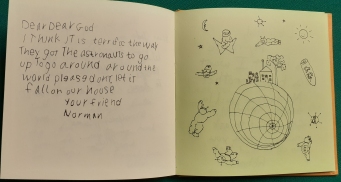 Dear Dear God
I think it is terrific the way
They got The astronauts to go
up To go around around the
world please dont let it
fall on our hoose
Your friend
Norman